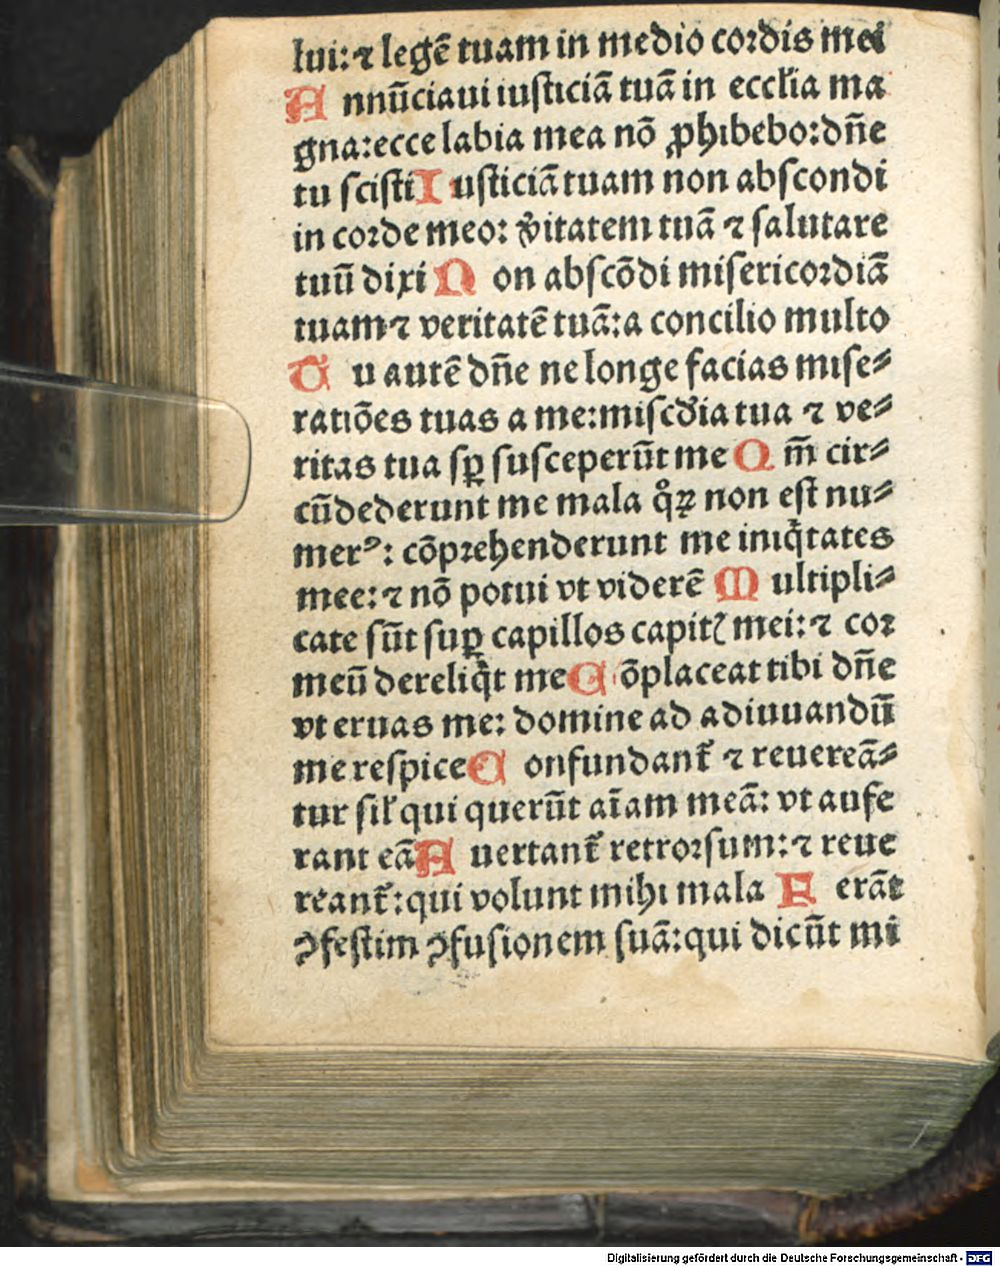 lui: ⁊ legē tuam in medio cordis mei
A nnūciaui iusticiā tuā in eccl'ia ma
gna: ecce labia mea nō ꝓhibebo: dñe
tu scisti I usticiā tuam non abscondi
in corde meo: v̓itatem tuā ⁊ salutare
tuū dixi N on abscōdi misericordiā
tuam ⁊ veritatē tuā: a concilio multo
T u autē dñe ne longe facias mise⸗
ratiōes tuas a me: misc̄dia tua ⁊ ve⸗
ritas tua sꝑ susceperūt me Q m̄ cir⸗
cūdederunt me mala qͦꝝ non est nu⸗
merꝰ: cōprehenderunt me iniq̇tates
mee: ⁊ nō potui vt viderē M ultipli⸗
cate sūt suꝑ capillos capitꝭ mei: ⁊ cor
meū dereliq̇t me C ōplaceat tibi dñe
vt eruas me: domine ad adiuuandū
me respice C onfundant᷑ ⁊ reuereā⸗
tur sil' qui querūt aīam meā: vt aufe
rant eā A uertant᷑ retrorsum: ⁊ reue
reant᷑: qui volunt mihi mala F erāt
ꝯfestim ꝯfusionem suā: qui dicūt mi
Digitalisierung gefördert durch die Deutsche Forschungsgemeinschaft - DFG